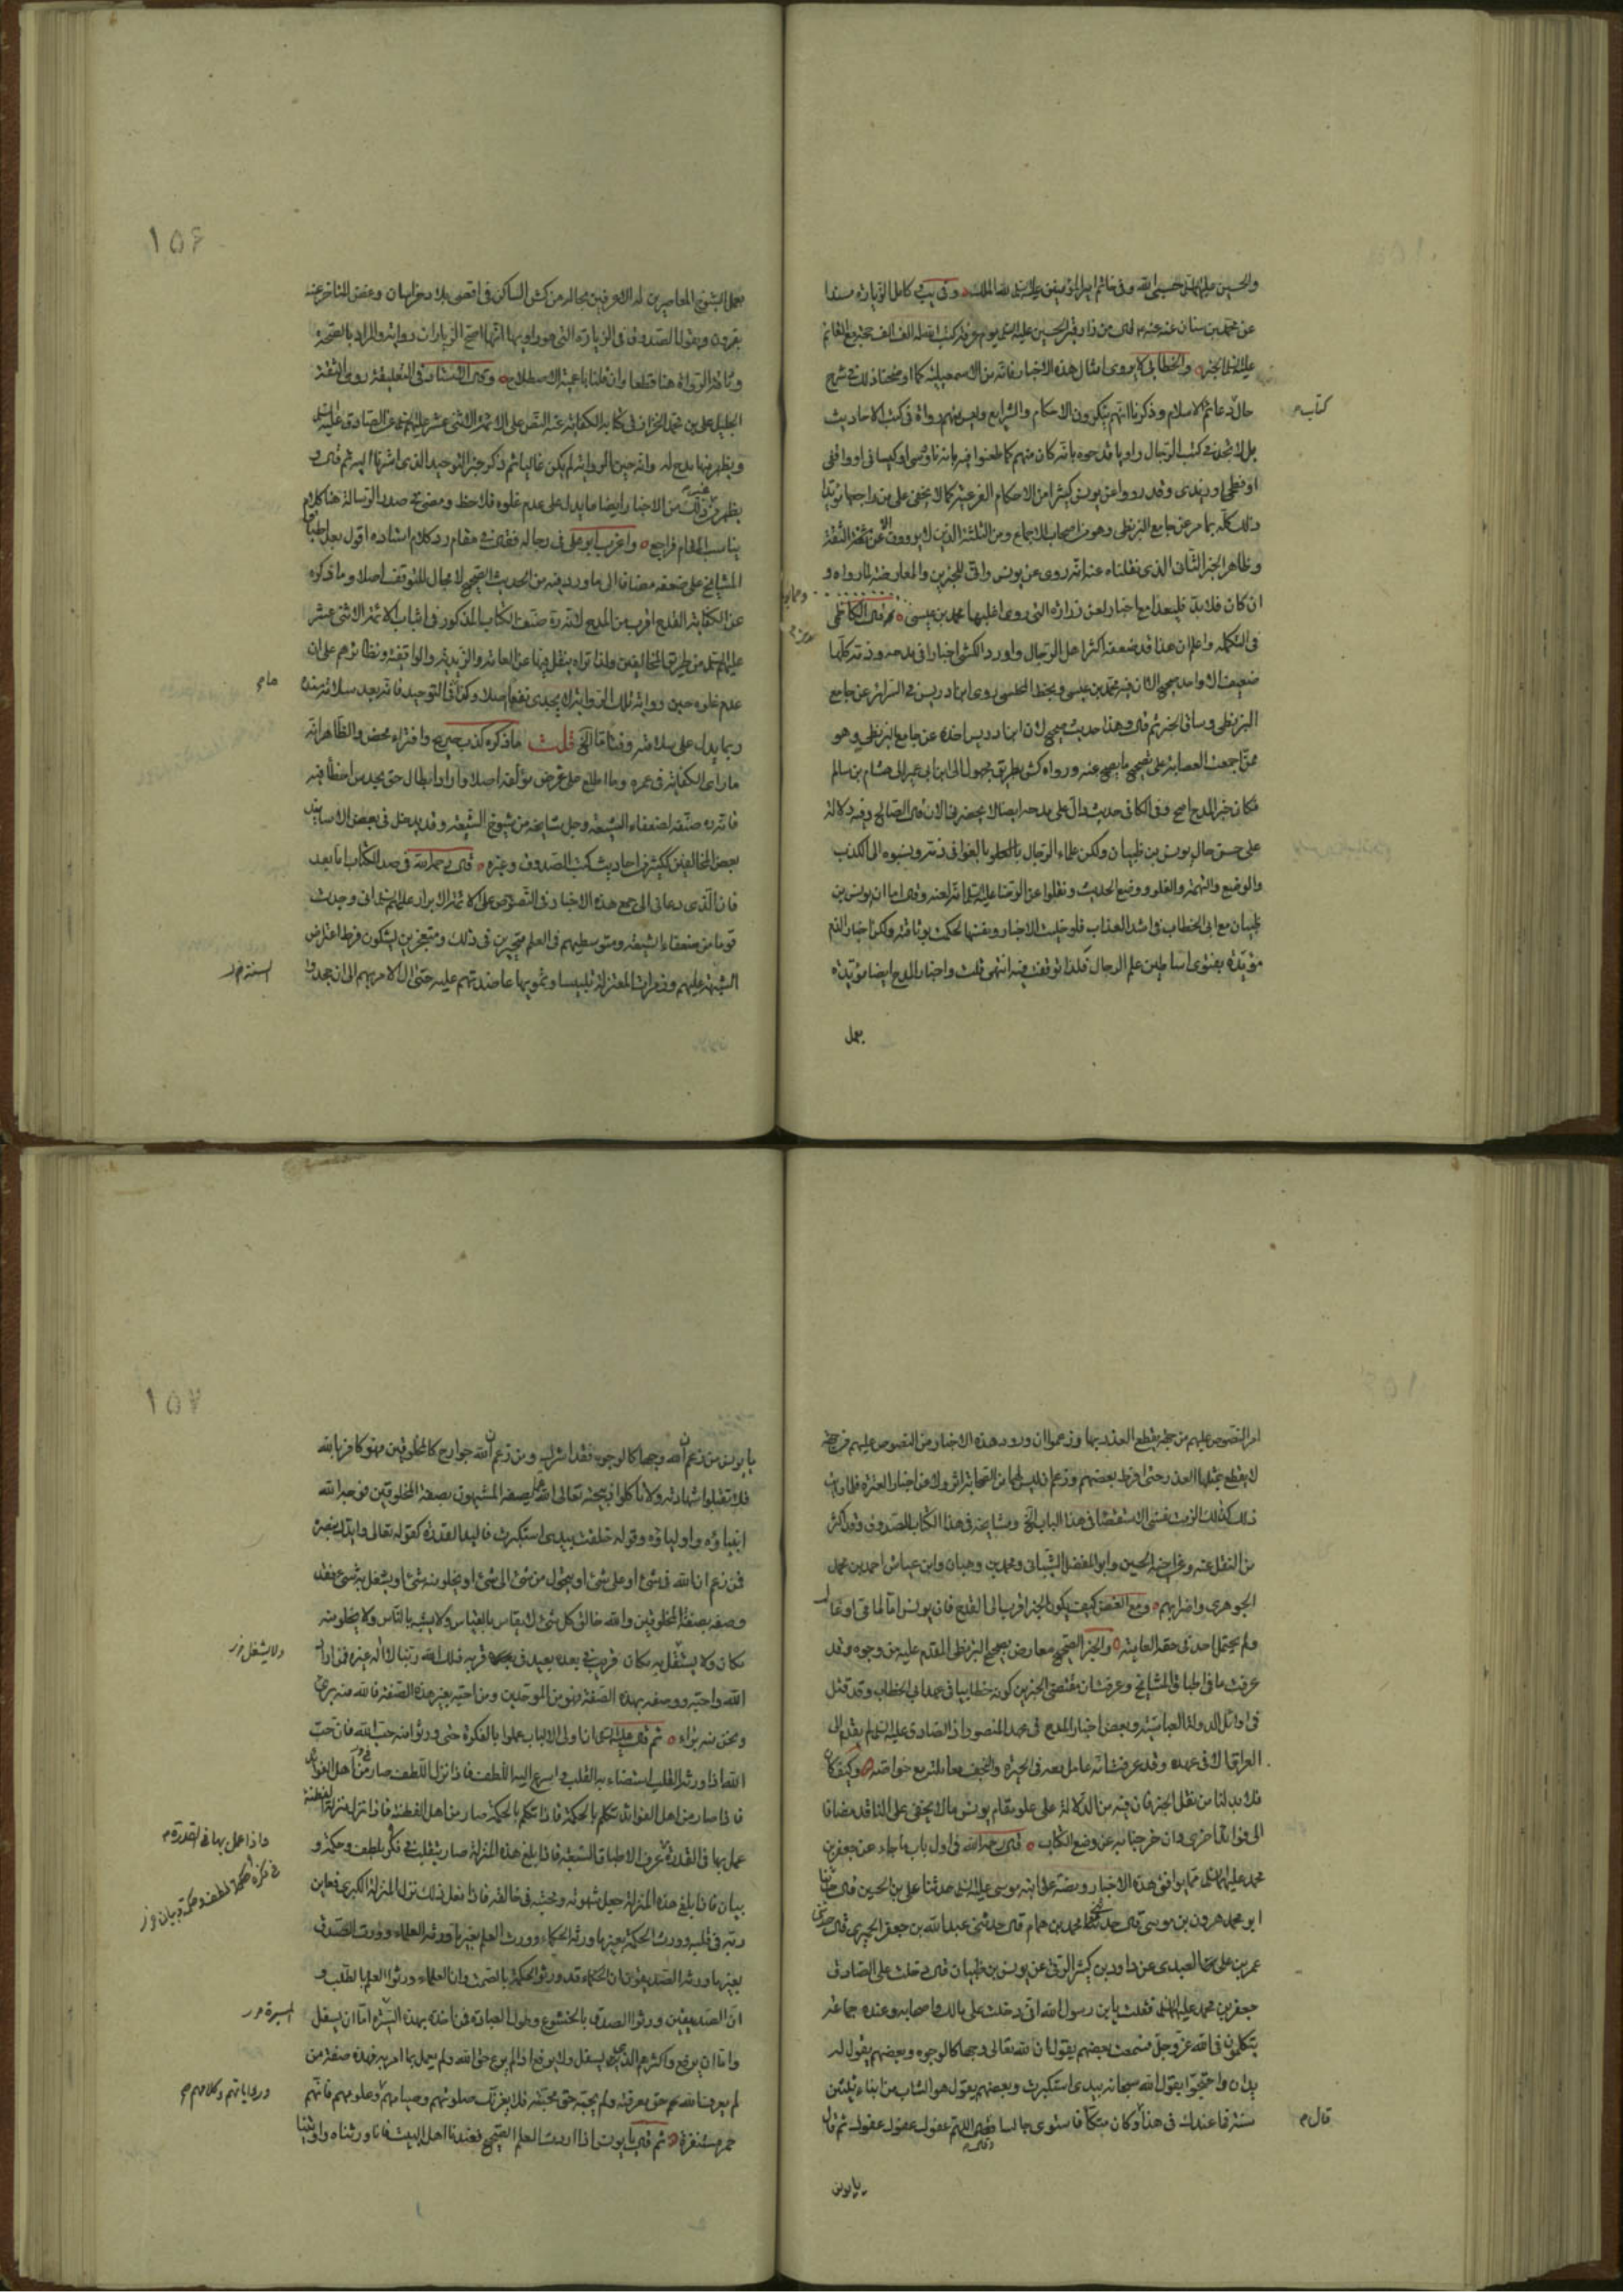 والحسين عليهما السلام حبيبي الله وفي خاتم امير المؤمنين عليه السلام لله الملك وفي كامل الزيارة مسندا
عن محمد بن سنان عنه قال من زار قبر الحسين عليه السلام يوم عرفة كتب الله له الف الف حجة مع القائم
عليه السلام الخبر والخطابي لا يروى امثال هذه الاخبار فانه من الاسمعيلية كما اوضحنا ذلك في شرح
حال دعائم الاسلام وذكرنا انهم ينكرون الاحكام والشرايع وليس منهم رواة في كتب الاحاديث
كتاب م
بل لا تجد في كتب الرجال راويا قدحوه بانه كان منهم كما طعنوا فيه بانه ناووسي او كيساني او واقفي
او فطحي او زيدي وقد رووا عن يونس كثيرا من الاحكام الفرعية كما لا يخفى على من راجعها مؤيدا
ذلك كله بما مر عن جامع البزنطي وهو من اصحاب الاجماع ومن الثلثة الذين لا يروون الا عن الثقة
وظاهر الخبر الثاني الذي نقلناه عنه انه روى عن يونس وافي للخبرين والمعارضة لما رواه و
ان كان فلا بد فليعد مع اخبار لعن زرارة التي روى اغلبها محمد بن عيسى قال الكاظمي
في التكملة واعلم ان هذا قد ضعفه اكثر اهل الرجال واورد الكشي اخبارا في مدحه وذمه كلها
ضعيف الا واحد صحيح الا ان فيه محمد بن عيسى وبخط المجلسي روى ابن ادريس في السرائر عن جامع
البزنطي وساق الخبر ثم قال وهذا حديث صحيح لان ابن ادريس اخذه عن جامع البزنطي وهو
ممن اجمعت العصابة على تصحيح ما يصح عنه ورواه كش بطريق مجهول الى ابن ابي عمير الى هشام بن سالم
فكان خبر المدح اصح وفي الكافي حديث دال على مدحه ايضا لا يحضرني الان قال الصالح وفيه دلالة
على حسن حال يونس بن ظبيان ولكن علماء الرجال بالغوا في ذمه ونسبوه الى الكذب
والوضع والتهمة والغلو ووضع الحديث ونقلوا عن الرضا عليه السلام انه لعنه وقال اما ان يونس بن
ظبيان مع ابي الخطاب في اشد العذاب فلو خليت الاخبار ونفسها لحكمت بوثاقته ولكن اخبار الذم
مؤيدة بفتوى اساطين علم الرجال فلذا توقفت فيه انتهى قلت واخبار المدح ايضا مؤيدة
بعمل
١٥٦
بعمل الشيوخ المعاصرين له الاعرفين بحاله من كش الساكن في اقصى بلاد خراسان وغض المتاخر عنه
بقرون وبقول الصدوق في الزيارة التي هو راويها انها اصح الزيارات رواية والمراد بالصحة
وثاقة الرواة هنا قطعا وان قلنا باعمية الاصطلاح وقال الاستاد في التعليقة روى الثقة
الجليل علي بن محمد الخزاز في كتابه الكفاية عنه النص على الائمة الاثني عشر عليهم السلام عن الصادق عليه السلام
ويظهر منها مدح له وانه حين الرواية لم يكن غاليا ثم ذكر خبر التوحيد الذي اشرنا اليه ثم قال و
يظهر من ذلك من الاخبار ايضا ما يدل على عدم غلوه فلاحظ ومضى في صدر الرسالة هنا كلام
يناسب المقام فراجع واغرب ابو علي في رجاله فقال في مقام رد كلام استاده اقول بعد اطباق
المشايخ على ضعفه مضافا الى ما ورد فيه من الحديث الصحيح لا مجال للتوقف اصلا وما ذكره
عن الكفاية القدح اقرب من المدح لانه ره صنف الكتاب المذكور في اثبات الائمة الاثني عشر
عليهم السلام من طريق المخالفين ولذا تراه ينقل فيها عن العامة والزيدية والواقفة ونظائرهم على ان
عدم غلوه حين رواية تلك الرواية لا يجدي نفعا اصلا وكذا في التوحيد فانه بعد سلامة سنده
مام
ربما يدل على سلامته وقتا ما الخ قلت ما ذكره كذب صريح وافتراء محض والظاهر انه
ما راى الكفاية في عمره وما اطلع على غرض مؤلفه اصلا واراد ابطال حق بعد من اخطأ فيه
فانه ره صنفه لضعفاء الشيعة وجل مشايخه من شيوخ الشيعة وقد يدخل في بعض الاسانيد
بعض المخالفين ككثير من احاديث كتب الصدوق وغيره قال رحمه الله في صدر الكتاب اما بعد
فان الذي دعاني الى جمع هذه الاخبار في النصوص على الائمة الابرار عليهم السلام اني وجدت
قوما من ضعفاء الشيعة ومتوسطيهم في العلم متحيرين في ذلك ومتعجزين يشكون فرط اعتراض
الشبهة عليهم وزمرات المعتزلة تلبيسا وتمويها عاضدتهم عليه حتى آل الامر بهم الى ان جحدوا
امر النصوص عليهم من جهة يقطع العذر بها وزعموا ان ورود هذه الاخبار ومن النصوص عليهم من جهة
لا يقطع بمثلها العذر حتى افرط بعضهم وزعم ان ليس لها من الصحابة اثر ولا عن اخبار العترة فلما رايت
ذلك كذلك الزمت نفسي الاستقصا في هذا الباب الخ ومشايخه في هذا الكتاب الصدوق وقد اكثر
من النقل عنه وعن اخيه الحسين وابو المفضل الشيباني ومحمد بن وهبان وابن عياش احمد بن محمد
الجوهري واضرابهم ومع الغض كيف يكون الخبر اقرب الى القدح فان يونس اما امامي او غال
ولم يحتمل احد في حقه العامية والخبر الصحيح معارض بصحيح البزنطي المقدم عليه من وجوه وقد
عرفت ما في اطباق المشايخ وعرفت ان مقتضى الخبرين كونه خطابيا في عهد ابي الخطاب وقد قتل
في اوائل الدولة العباسية وبعض اخبار المدح في عهد المنصور اذ الصادق عليه السلام لم يقدم الى
العراق الا في عهده وقد عرفت انه عامل معه في الحيرة والنجف معاملته مع خواصه وكيف كان
فلا بد لنا من نقل الخبر فان فيه من الدلالة على علو مقام يونس ما لا يخفى على الناقد مضافا
الى فوائد اخرى وان خرجنا به عن وضع الكتاب قال رحمه الله في اول باب ما جاء عن جعفر بن
محمد عليهما السلام مما يوافق هذه الاخبار ونصه على ابنه موسى عليه السلام حدثنا علي بن الحسين قال حدثنا
ابو محمد هرون بن موسى قال حدثني محمد بن همام قال حدثني عبد الله بن جعفر الحميري قال حدثني
عمر بن علي العبدي عن داود بن كثير الرقي عن يونس بن ظبيان قال دخلت على الصادق
جعفر بن محمد عليهما السلام فقلت يابن رسول الله اني دخلت على مالك واصحابه وعنده جماعة
يتكلمون في الله عز وجل فسمعت بعضهم يقول ان لله تعالى وجها كالوجوه وبعضهم يقول له
يدان واحتجوا بقول الله سبحانه بيدي استكبرت وبعضهم يقول هو الشاب من ابناء ثلثين
سنة فما عندك في هذا وكان متكئا فاستوى جالسا وقال اللهم عفوك عفوك عفوك ثم قال
قال م
يا يونس
١٥٧
يا يونس من زعم ان لله وجها كالوجوه فقد اشرك ومن زعم ان لله جوارح كالمخلوقين فهو كافر بالله
فلا تقبلوا شهادته ولا تاكلوا ذبيحته تعالى الله عما يصفه المشبهون بصفة المخلوقين فوجه الله
انبياؤه واولياؤه وقوله خلقت بيدي استكبرت فاليد القدرة كقوله تعالى وايدكم بنصره
فمن زعم ان الله في شئ او على شئ او يحول من شئ الى شئ او يخلو منه شئ او يشغل به شئ فقد
وصفه بصفة المخلوقين والله خالق كل شئ لا يقاس بالقياس ولا يشبه بالناس ولا يخلو منه
مكان ولا يشتغل به مكان قريب في بعده بعيد في قربه ذلك الله ربنا لا اله غيره فمن اراد
ولا يشغل خ ر
الله واحبه ووصفه بهذه الصفة فهو من الموحدين ومن احبه بغير هذه الصفة فالله منه برئ
ونحن منه براء ثم قال عليه السلام ان اولي الالباب عملوا بالفكرة حتى ورثوا منه حب الله فان حب
الله اذا ورثه القلب استضاء به القلب واسرع اليه اللطف فاذا نزل اللطف صار من اهل الفوائد
فاذا صار من اهل الفوائد تكلم بالحكمة فاذا تكلم بالحكمة صار من اهل الفطنة فاذا نزل منزلة الفطنة
عمل بها في القدرة عرف الاطباق السبعة فاذا بلغ هذه المنزلة صار يتقلب في فكر بلطف وحكمة و
فاذا عمل بها في القدرة م
بيان فاذا بلغ هذه المنزلة جعل شهوته ومحبته في خالقه فاذا فعل ذلك نزل المنزلة الكبرى فعاين
ربه في قلبه وورث الحكمة بغير ما ورثه الحكماء وورث العلم بغير ما ورثه العلماء وورث الصدق
بغير ما ورثه الصديقون ان الحكماء قد ورثوا الحكمة بالصمت وان العلماء ورثوا العلم بالطلب و
ان الصديقين ورثوا الصدق بالخشوع وطول العبادة فمن اخذه بهذه السيرة اما ان يسفل
واما ان يرفع واكثرهم الذي يسفل ولا يرفع اذا لم يرع حق الله ولم يعمل بما امر به فهذه صفة من
لم يعرف الله حق معرفته ولم يحبه حق محبته فلا يغرنك صلوتهم وصيامهم وعلومهم فانهم
ورواياتهم وكلامهم
حمر مستنفرة ثم قال يا يونس اذا اردت العلم الصحيح فعندنا اهل البيت فانا ورثناه واوتينا